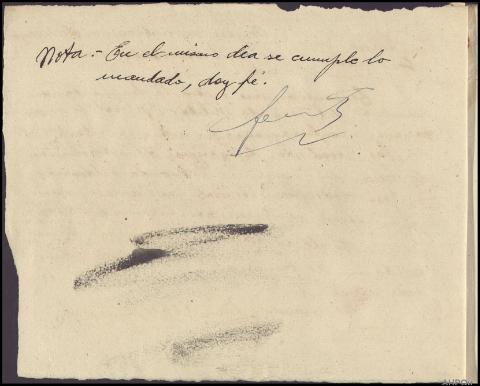 Nota.- En el mismo día se cumple lo
mandado, doy fé.